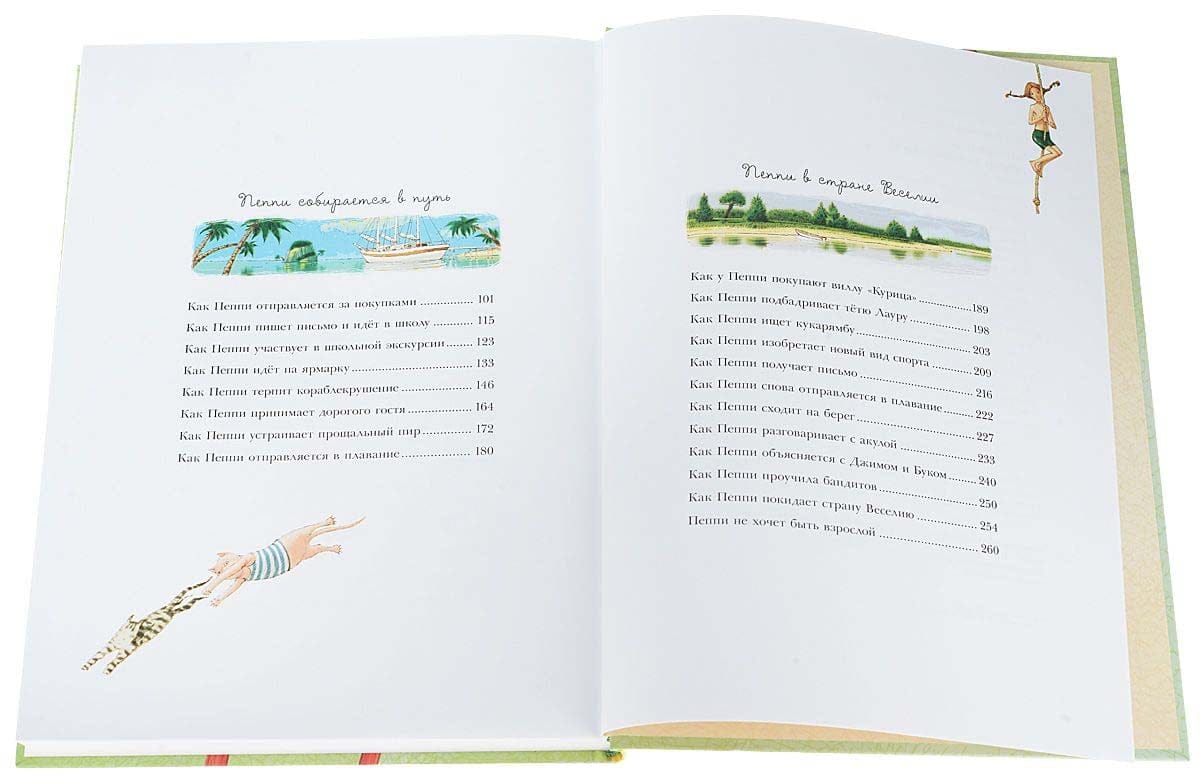 Пеппи собирается в путь
Как Пеппи отправляется за покупками ................ 101
Как Пеппи пишет письмо и идёт в школу ............ 115
Как Пеппи участвует в школьной экскурсии ........ 123
Как Пеппи идёт на ярмарку ..................................... 133
Как Пеппи терпит кораблекрушение ...................... 146
Как Пеппи принимает дорогого гостя ..................... 164
Как Пеппи устраивает прощальный пир ................ 172
Как Пеппи отправляется в плавание ...................... 180
Пеппи в стране Веселии
Как у Пеппи покупают виллу «Курица» ................ 189
Как Пеппи подбадривает тётю Лауру .................... 198
Как Пеппи ищет кукарямбу .................................... 203
Как Пеппи изобретает новый вид спорта .............. 209
Как Пеппи получает письмо ................................... 216
Как Пеппи снова отправляется в плавание ........... 222
Как Пеппи сходит на берег ..................................... 227
Как Пеппи разговаривает с акулой ........................ 233
Как Пеппи объясняется с Джимом и Буком ......... 240
Как Пеппи проучила бандитов ............................... 250
Как Пеппи покидает страну Веселию .................... 254
Пеппи не хочет быть взрослой ............................... 260